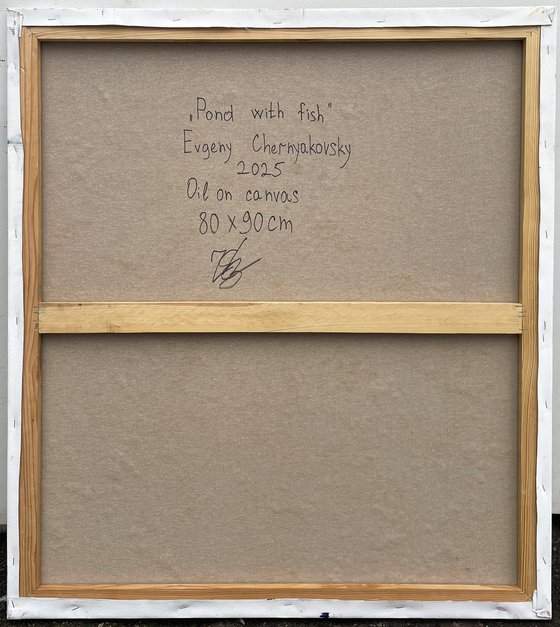 „Pond with fish"
Evgeny Chernyakovsky
2025
Oil on canvas
80 x 90 cm